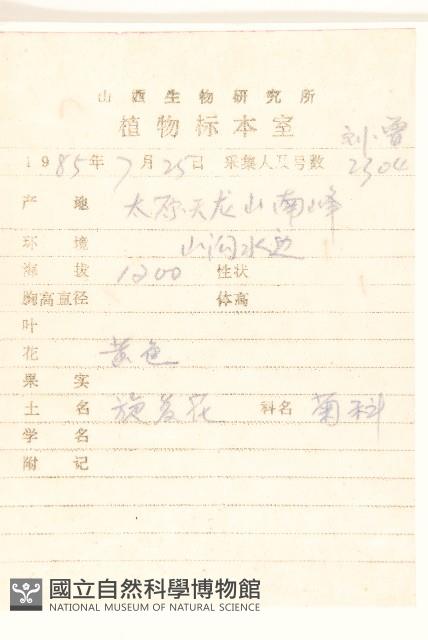 山西生物研究所
植物标本室
刘、曾
1985年7月25日 采集人及号数 2304
产 地 太原天龙山南峰
环 境 山沟水边
海 拔 1200 性状
胸高直径 体高
叶
花 黄色
果 实
土 名 旋复花 科名 菊科
学 名
附 记
國立自然科學博物館
NATIONAL MUSEUM OF NATURAL SCIENCE